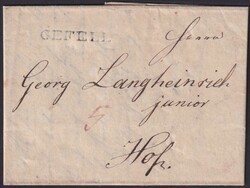 GEFELL Herrn
Georg Langheinrich
junior
5
Hof.